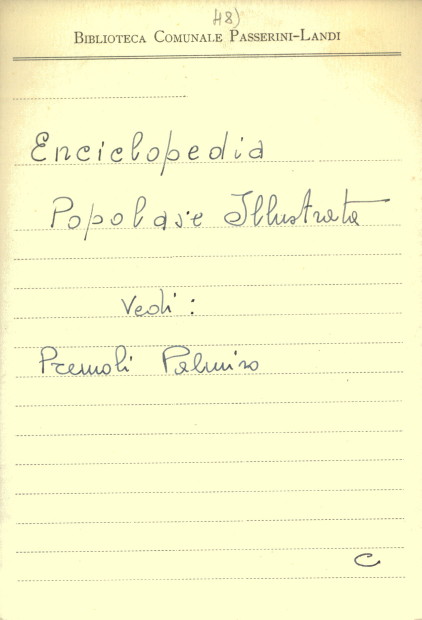 48)
BIBLIOTECA COMUNALE PASSERINI-LANDI
Enciclopedia
Popolare Illustrata
Vedi:
Premoli Palmiro
C